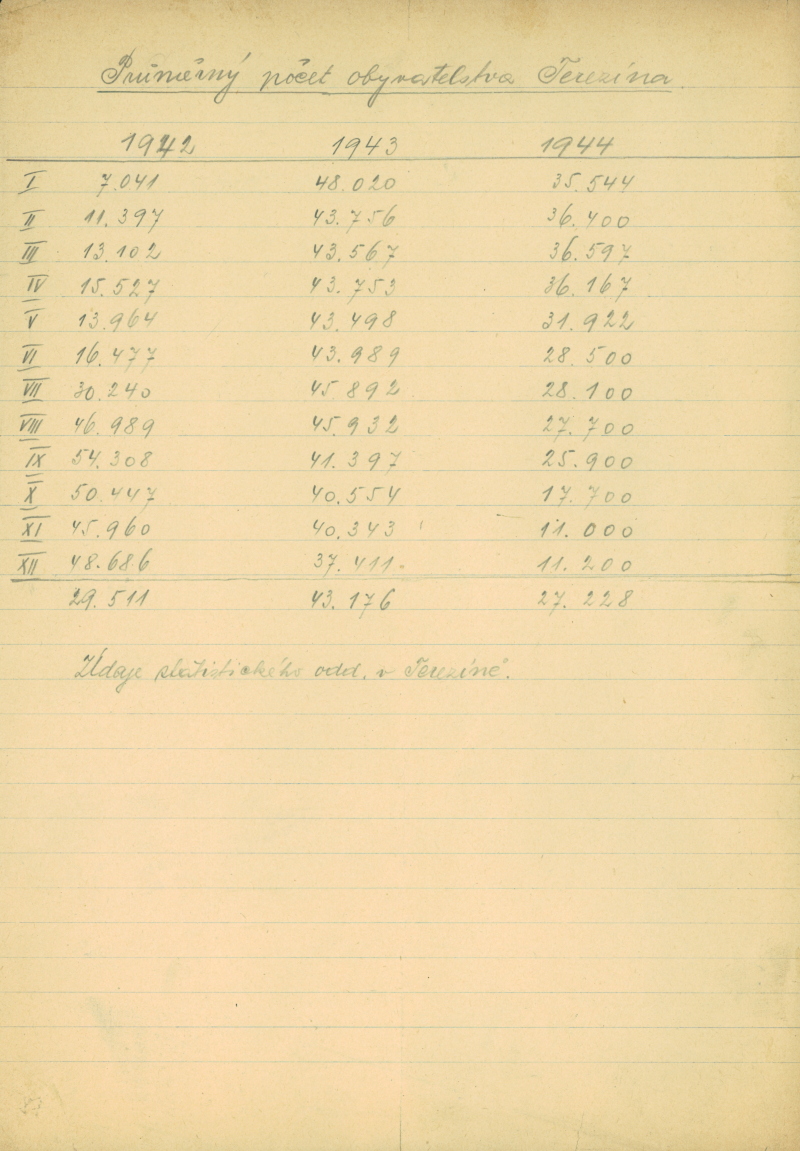 Průměrný počet obyvatelstva Terezína
1942 1943 1944
I 7.041 48.020 35.544
II 11.397 43.756 36.400
III 13.102 43.567 36.597
IV 15.527 43.753 36.167
V 13.964 43.498 31.922
VI 16.477 43.989 28.500
VII 30.240 45 892 28.100
VIII 46.989 45.932 27.700
IX 54.308 41.397 25.900
X 50.447 40.554 17.700
XI 45.960 40.343 11.000
XII 48.686 37.411 11.200
29.511 43.176 27.228
Údaje statistického odd. v Terezíně.